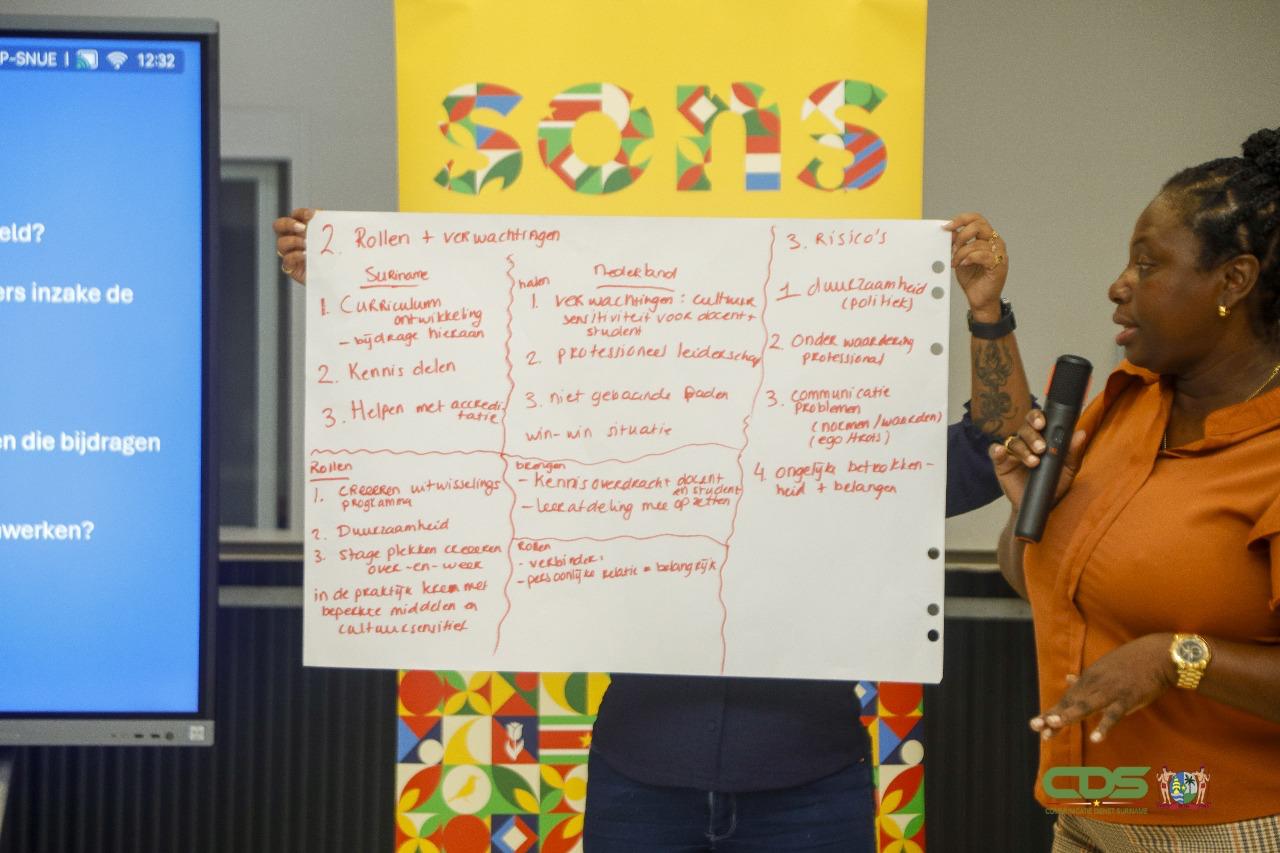 P-SNUE | 12:32
eld?
ers inzake de
en die bijdragen
nwerken?
sons
2. Rollen + verwachtingen
Suriname
1. Curriculum
ontwikkeling
- bijdrage hieraan
2. Kennis delen
3. Helpen met accredi
tatie
Rollen
1. creeëren uitwisselings
programma
2. Duurzaamheid
3. stage plekken creeeren
over-en-weer
in de praktijk
met
beperkte middelen en
cultuursensitief
Nederland
halen
1. verwachtingen: cultuur
sensitiviteit voor docent+
student
2. professioneel leiderschap
3. niet gebaande paden
win-win situatie
brengen
- Kennisoverdracht docent
en student
- Leerafdeling mee opzetten
Rollen
- verbinder:
- persoonlijke relatie = belangrijk
3. Risico's
1 duurzaamheid
(politiek)
2. onder waardering
professional
3. communicatie
problemen
(normen/waarden)
(ego/trots)
4. ongelijke betrokken-
heid + belangen
CDS
COMMUNICATIE DIENST SURINAME